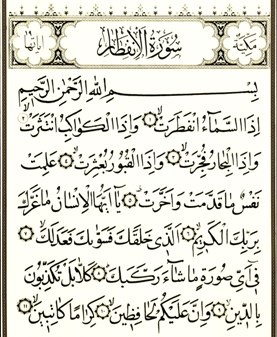 مكية سورة الانفطار آياتها ١٩
بِسْمِ اللهِ الرَّحْمٰنِ الرَّحِيمِ
إِذَا السَّمَاءُ انْفَطَرَتْ ۝١ وَإِذَا الْكَوَاكِبُ انْتَثَرَتْ ۝٢
وَإِذَا الْبِحَارُ فُجِّرَتْ ۝٣ وَإِذَا الْقُبُورُ بُعْثِرَتْ ۝٤ عَلِمَتْ
نَفْسٌ مَا قَدَّمَتْ وَأَخَّرَتْ ۝٥ يَا أَيُّهَا الْإِنْسَانُ مَا غَرَّكَ
بِرَبِّكَ الْكَرِيمِ ۝٦ الَّذِي خَلَقَكَ فَسَوّٰيكَ فَعَدَلَكَ ۝٧
فِي أَيِّ صُورَةٍ مَا شَاءَ رَكَّبَكَ ۝٨ كَلَّا بَلْ تُكَذِّبُونَ
بِالدِّينِ ۝٩ وَإِنَّ عَلَيْكُمْ لَحَافِظِينَ ۝١٠ كِرَامًا كَاتِبِينَ ۝١١